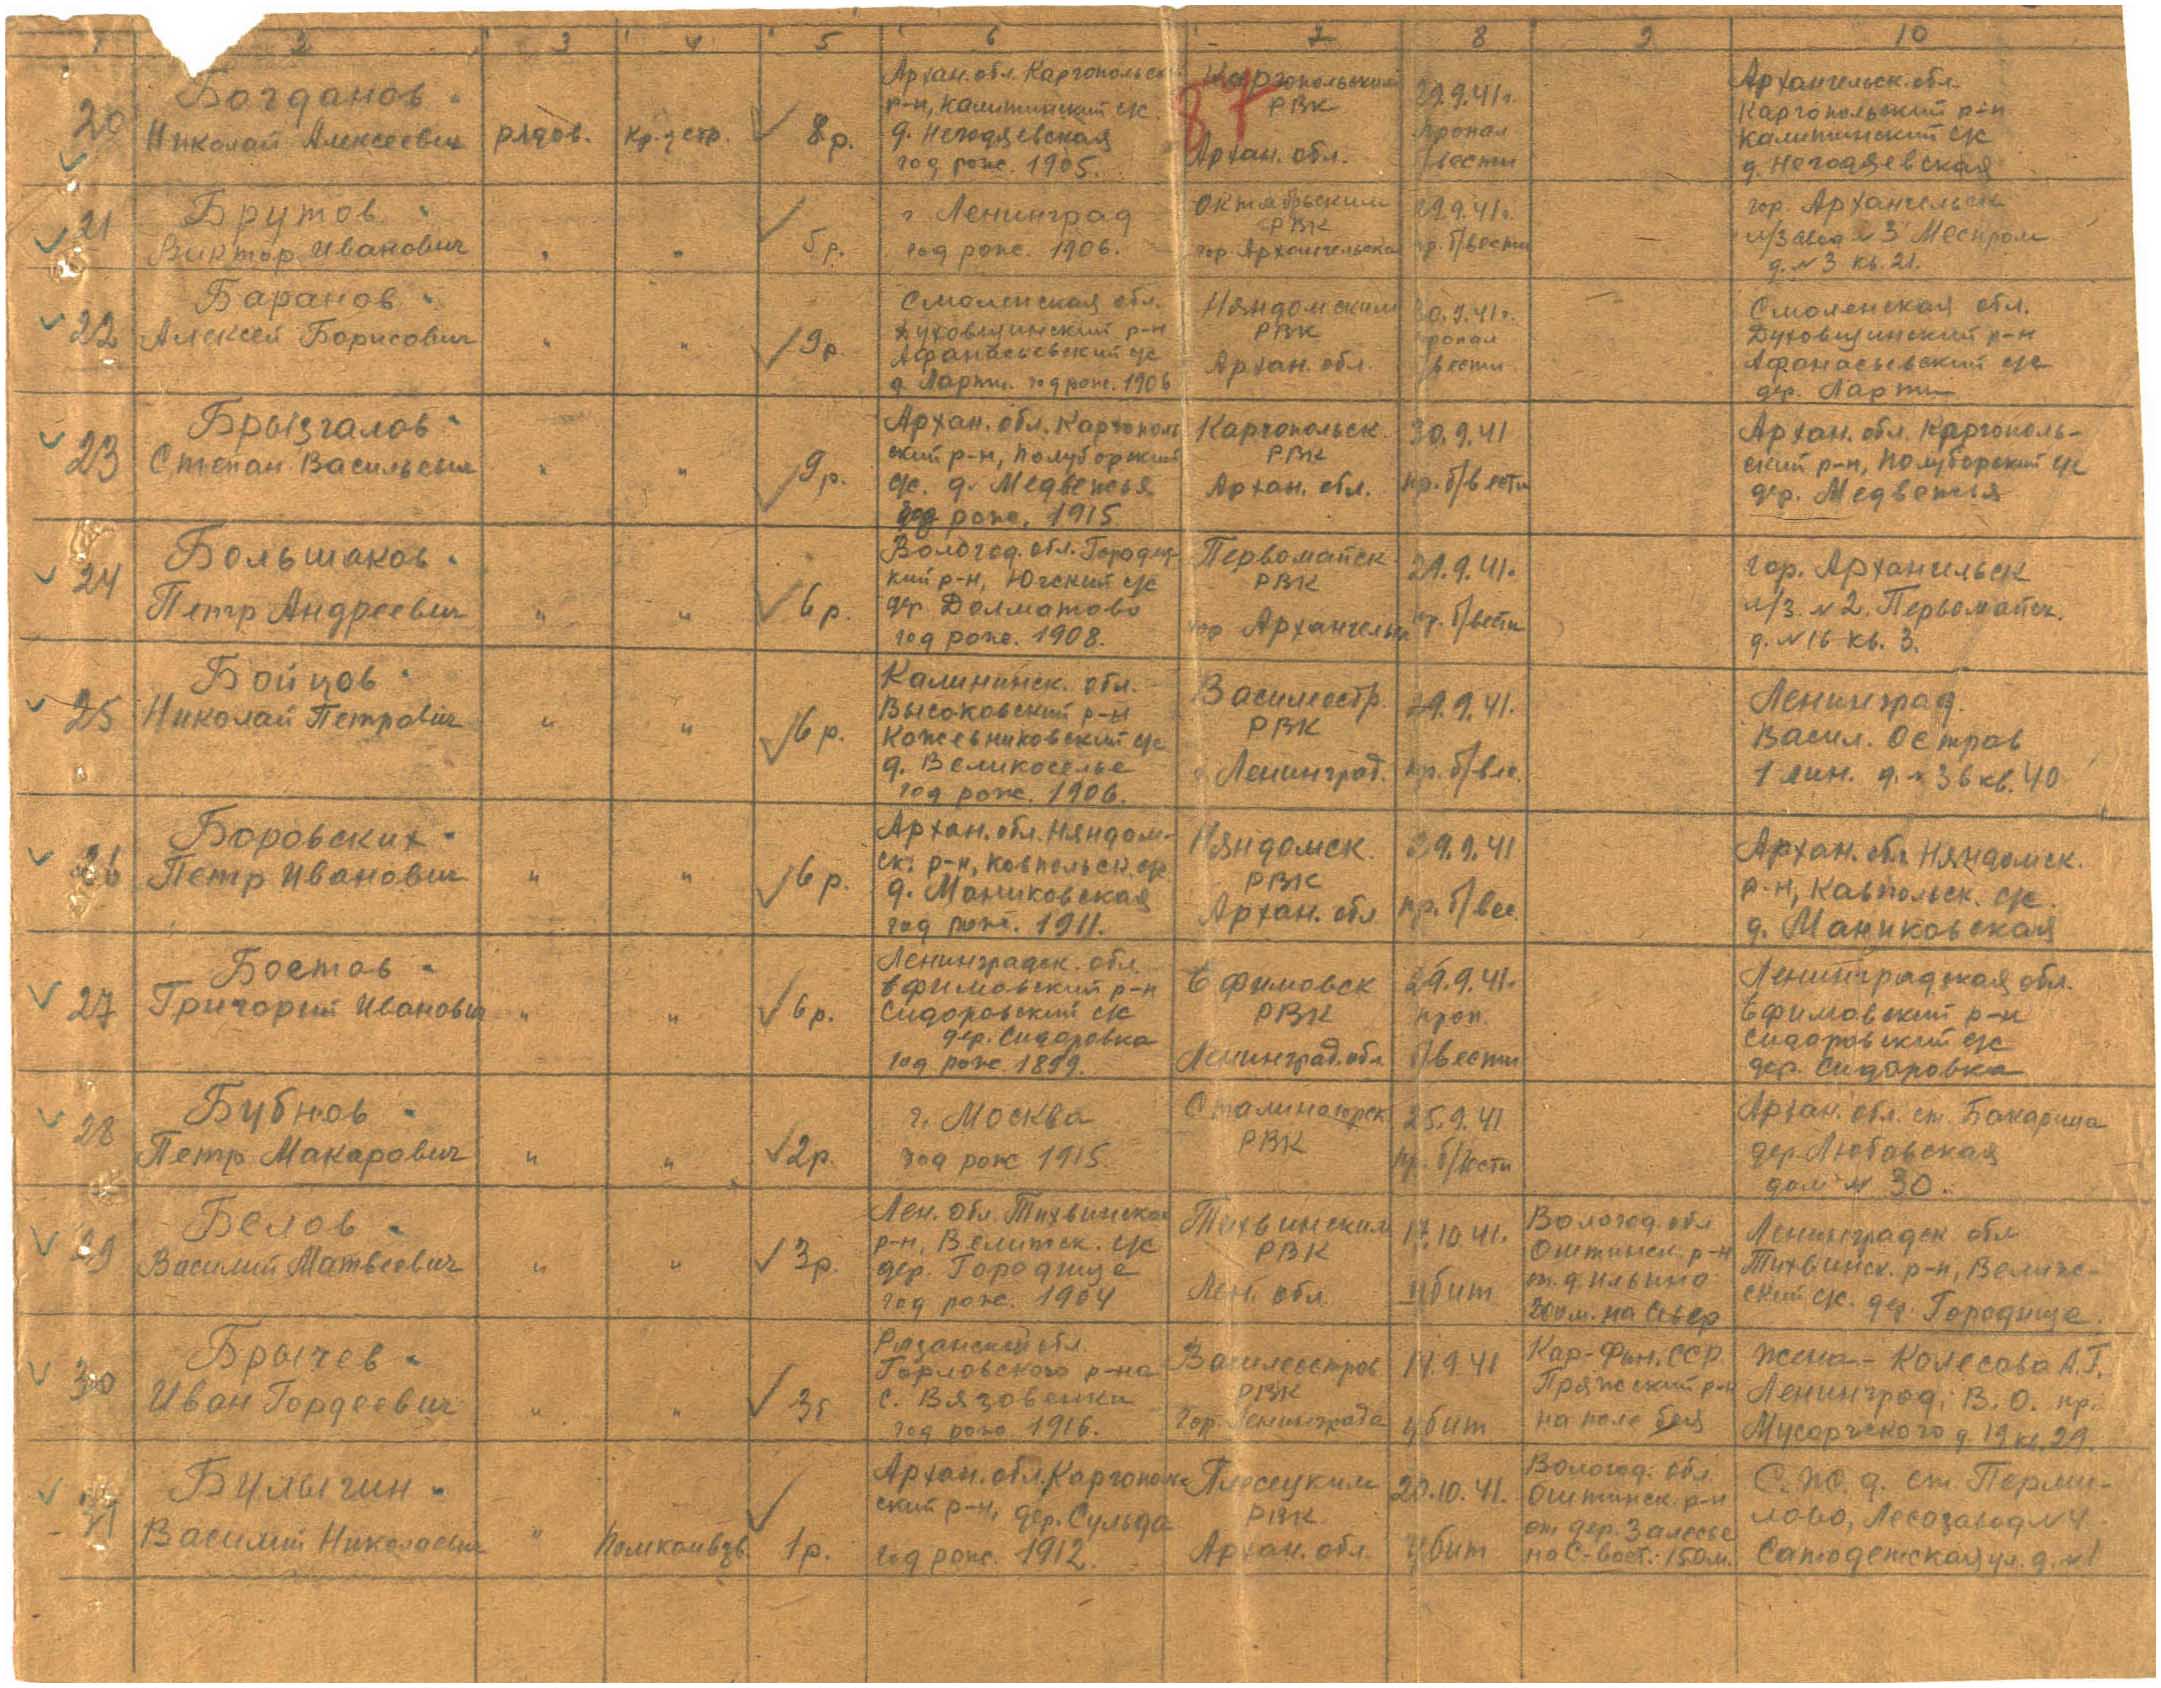 1 2 3 4 5 6 7 8 9 10
87
20
Богданов
Николай Алексеевич
рядов.
кр- 2 стр.
8 р.
Архан. обл. Каргопольск
р-н, Калитинский с/с
д. Негодяевская
год рож. 1905.
Каргопольским
РВК
Архан. обл.
29.9.41г.
пропал
б/вести
Архангельск. обл.
Каргопольский р-н
Калитинский с/с
д. Негодяевская
21
Брутов
Виктор Иванович
"
"
5 р.
г. Ленинград
год рож. 1906.
Октябрьским
РВК
гор. Архангельска
29.9.41г.
пр. б/вести
гор. Архангельск
л/завод № 3
д. № 3 кв. 21.
22
Баранов
Алексей Борисович
"
"
9 р.
Смоленская обл.
Духовщинский р-н
Афанасьевский с/с
год рож. 1906
Няндомским
РВК
Архан. обл.
30.9.41г.
пропал
б/вести
Смоленская обл.
Духовщинский р-н
Афанасьевский с/с
дер.
23
Брызгалов
Степан Васильевич
"
"
9 р.
Архан. обл. Каргополь
ский р-н, Полуборский
с/с. д. Медвежья
год рож. 1915
Каргопольск.
РВК
Архан. обл.
30.9.41
пр. б/вести
Архан. обл. Каргополь-
ский р-н, Полуборский с/с
дер. Медвежья
24
Большаков
Петр Андреевич
"
"
6 р.
Вологод. обл.
кий р-н, Югский с/с
дер. Долматово
год рож. 1908.
Первомайск
РВК
гор Архангельск
29.9.41г.
пр. б/вести
гор. Архангельск
л/з. № 2. Первомайск.
д. № 16 кв. 3.
25
Бойцов
Николай Петрович
"
"
6 р.
Калининск. обл.
Высоковский р-н
Кожевниковский с/с
д. Великоселье
год рож. 1906.
Василеостр.
РВК
г. Ленинград.
29.9.41.
пр. б/вес.
Ленинград.
Васил. Остров
1 лин. д. № 36 кв. 40
26
Боровских
Петр Иванович
"
"
6 р.
Архан. обл. Няндом-
ск. р-н, с/с
д. Маниковская
год рож. 1911.
Няндомск.
РВК
Архан. обл
29.9.41
пр. б/вес.
Архан. обл Няндомск.
р-н, с/с
д. Маниковская
27
Бостов
Григорий Иванович
"
"
6 р.
Ленинградск. обл.
Ефимовский р-н
Сидоровский с/с
дер. Сидоровка
год рож 1899.
Ефимовск
РВК
Ленинград. обл
29.9.41.
проп.
б/вести
Ленинградская обл.
Ефимовский р-н
Сидоровский с/с
дер. Сидоровка
28
Бубнов
Петр Макарович
"
"
2 р.
г. Москва
год рож 1915.
Сталиногорск
РВК
25.9.41
пр. б/вести
Архан. обл. ст. Бакарица
дер. Любовская
дом № 30.
29
Белов
Василий Матвеевич
"
"
3 р.
Лен. обл. Тихвинский
р-н, с/с
дер. Городище
год рож. 1904
Тихвинским
РВК
Лен. обл.
17.10.41.
убит
Вологод. обл
Оштинск. р-н
от д. Ильино
200 м. на север
Ленинградск обл
Тихвинск. р-н,
ский с/с. дер. Городище.
30
Брычев
Иван Гордеевич
"
"
3 р
Рязанской обл
Горловского р-на
с. Вязовенки
год рож 1916.
Василеостров
РВК
гор. Ленинграда
19.9.41
убит
Кар-Фин. ССР.
Пряжский р-н
на поле боя
жена - Колесова А.Г.
Ленинград, В.О. пр.
Мусоргского д. 19 кв. 29.
31
Булыгин
Василий Николаевич
"
Помкомвзв.
1 р.
Архан. обл. Каргополь
ский р-н, дер. Сульда
год рож. 1912.
Плесецким
РВК
Архан. обл.
20.10.41.
убит
Вологод. обл
Оштинск. р-н
от дер. Залесье
на С-вост. 150 м.
С.Ж.д. ст. Перми-
лово, Лесозавод № 4
ул. д. № 1